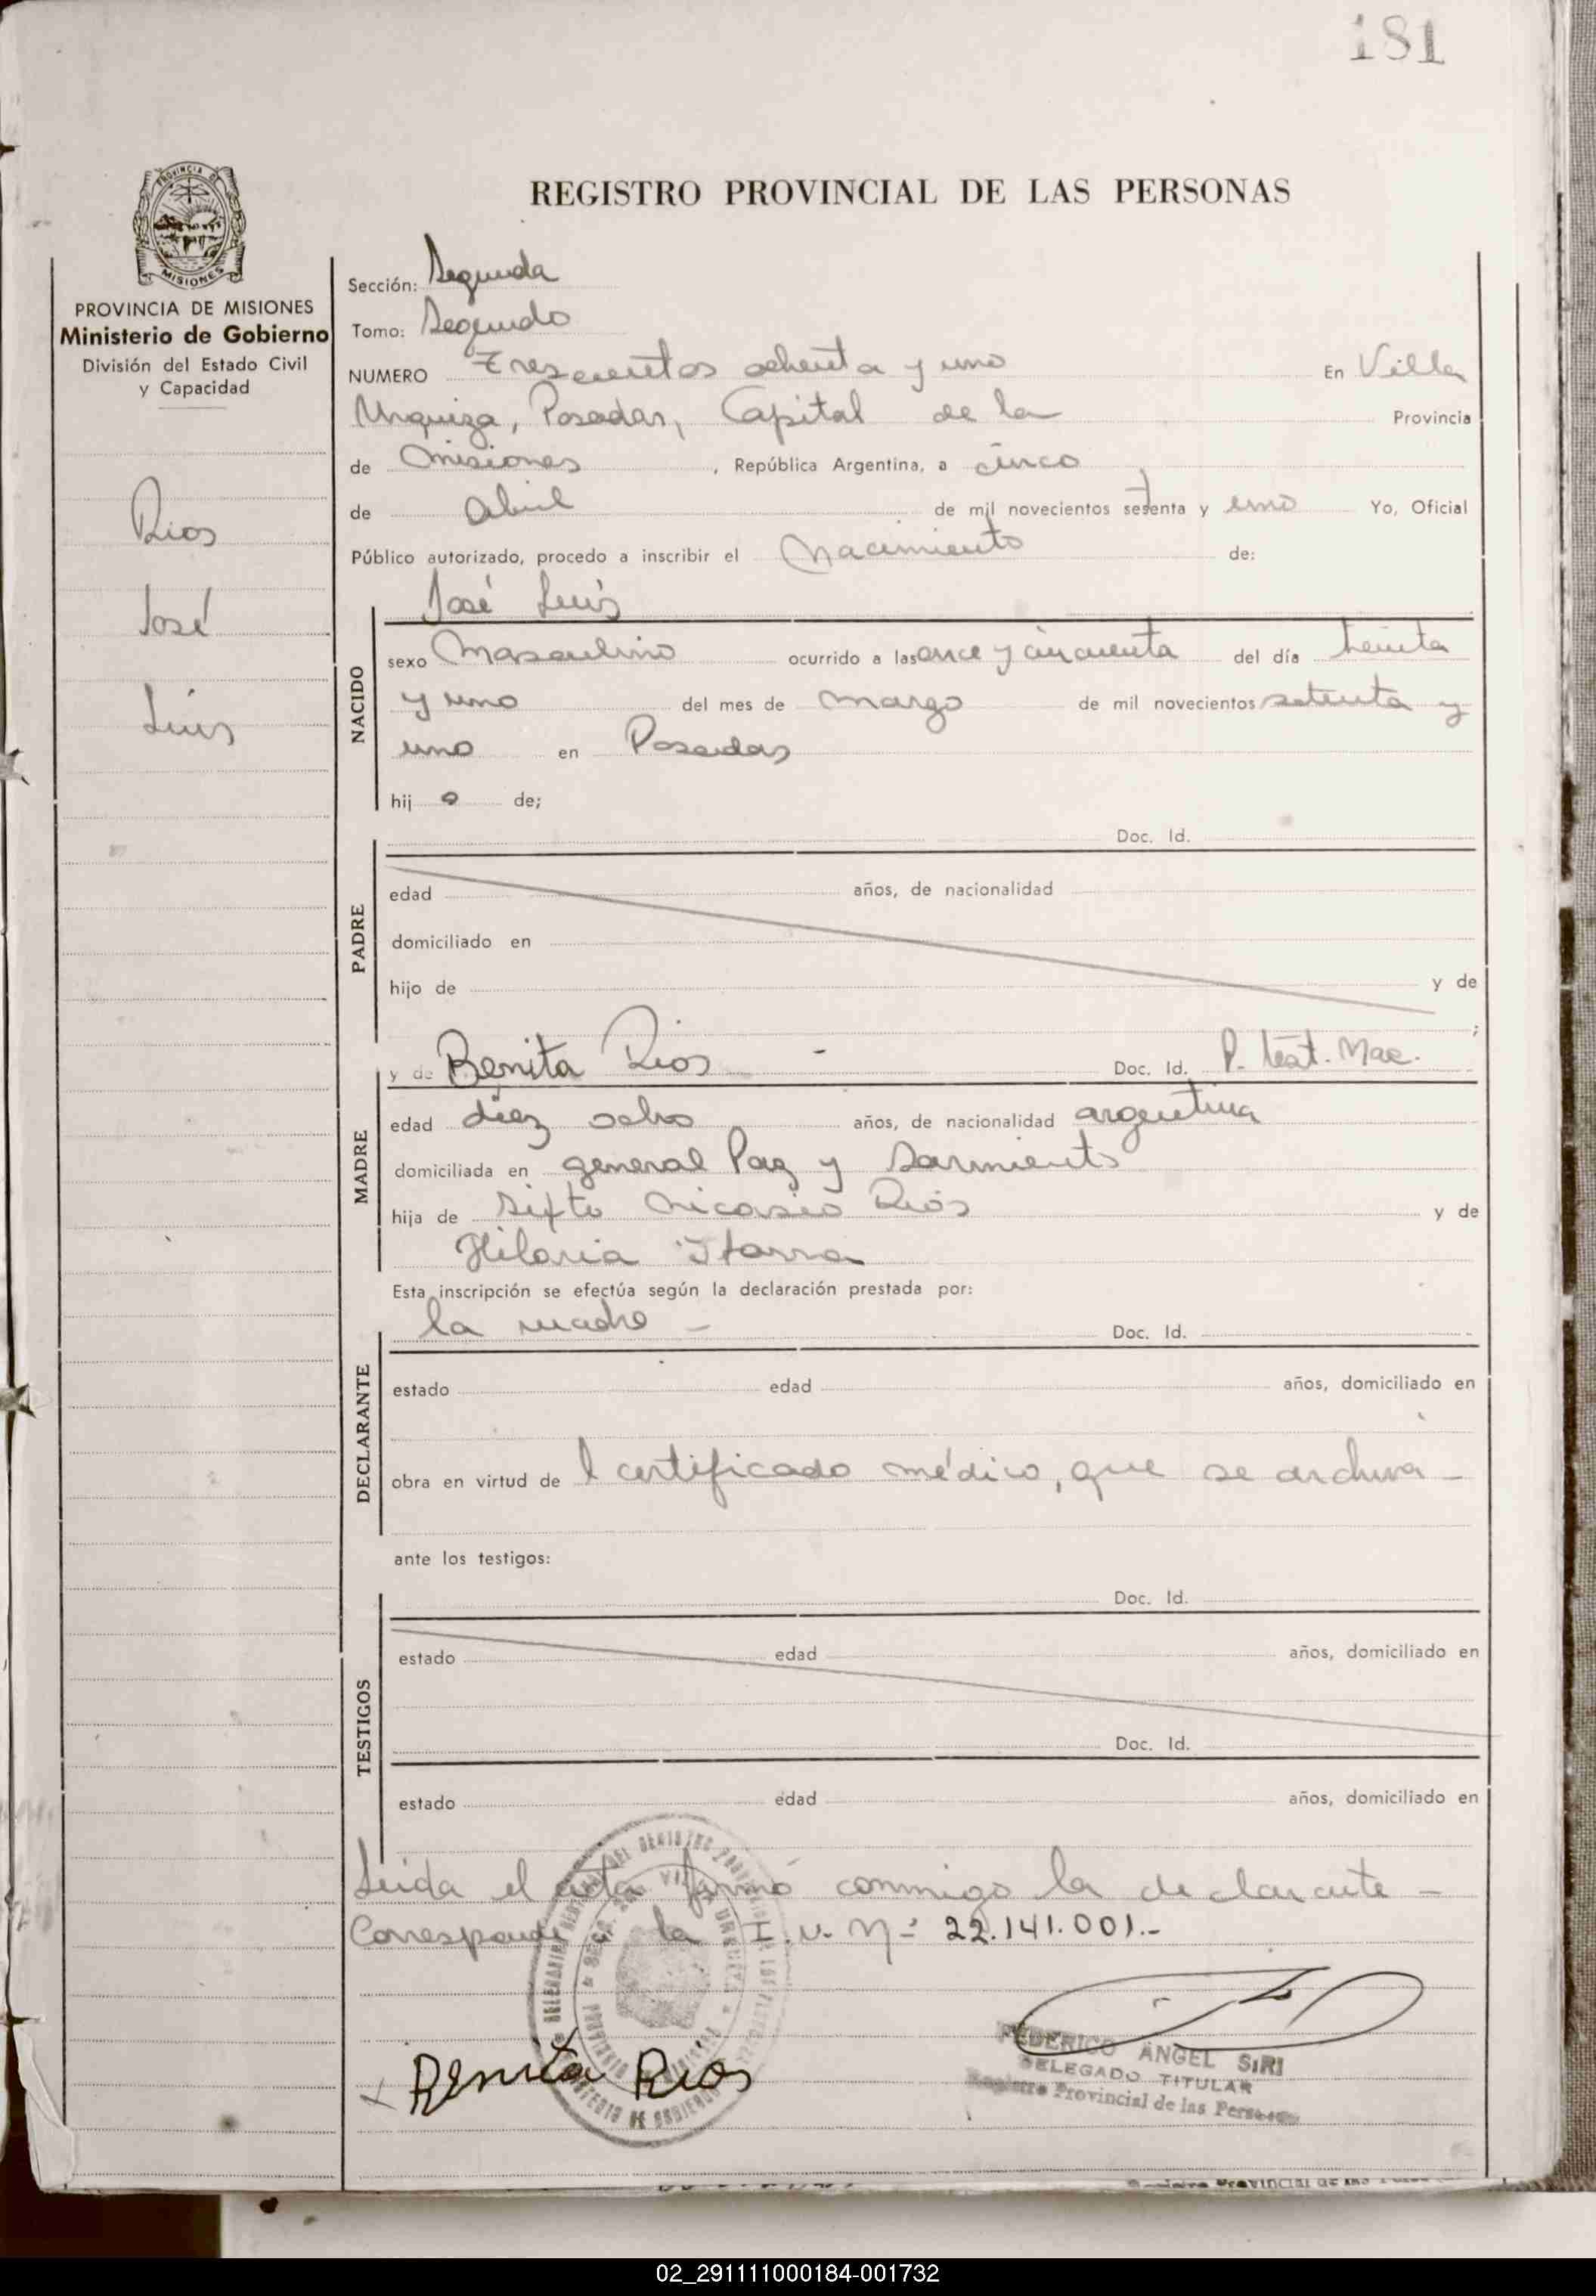 181
PROVINCIA DE MISIONES
PROVINCIA DE MISIONES
Ministerio de Gobierno
División del Estado Civil
y Capacidad
Rios
José
Luis
REGISTRO PROVINCIAL DE LAS PERSONAS
Sección: Segunda
Tomo: Segundo
NUMERO Trescientos ochenta y uno En Villa
Urquiza, Posadas, Capital de la Provincia
de Misiones, República Argentina, a cinco
de Abril de mil novecientos setenta y uno Yo, Oficial
Público autorizado, procedo a inscribir el Nacimiento de:
José Luis
NACIDO
sexo Masculino ocurrido a las once y cincuenta del día treinta
y uno del mes de marzo de mil novecientos setenta y
uno en Posadas
hij o de;
Doc. Id.
PADRE
edad años, de nacionalidad
domiciliado en
hijo de y de
;
MADRE
y de Benita Rios - Doc. Id. P. test. Mae.
edad diez ocho años, de nacionalidad argentina
domiciliada en general Paz y Sarmiento
hija de Sixto Nicasio Rios y de
Hilaria
Esta inscripción se efectúa según la declaración prestada por:
la madre - Doc. Id.
DECLARANTE
estado edad años, domiciliado en
obra en virtud de l certificado médico, que se archiva -
ante los testigos:
Doc. Id.
TESTIGOS
estado edad años, domiciliado en
Doc. Id.
estado edad años, domiciliado en
Leida el acta firmó conmigo la declarante -
Corresponde la I.U. Nº 22.141.001.-
Benita Rios
FEDERICO ANGEL SIRI
DELEGADO TITULAR
Registro Provincial de las Personas
02_291111000184-001732